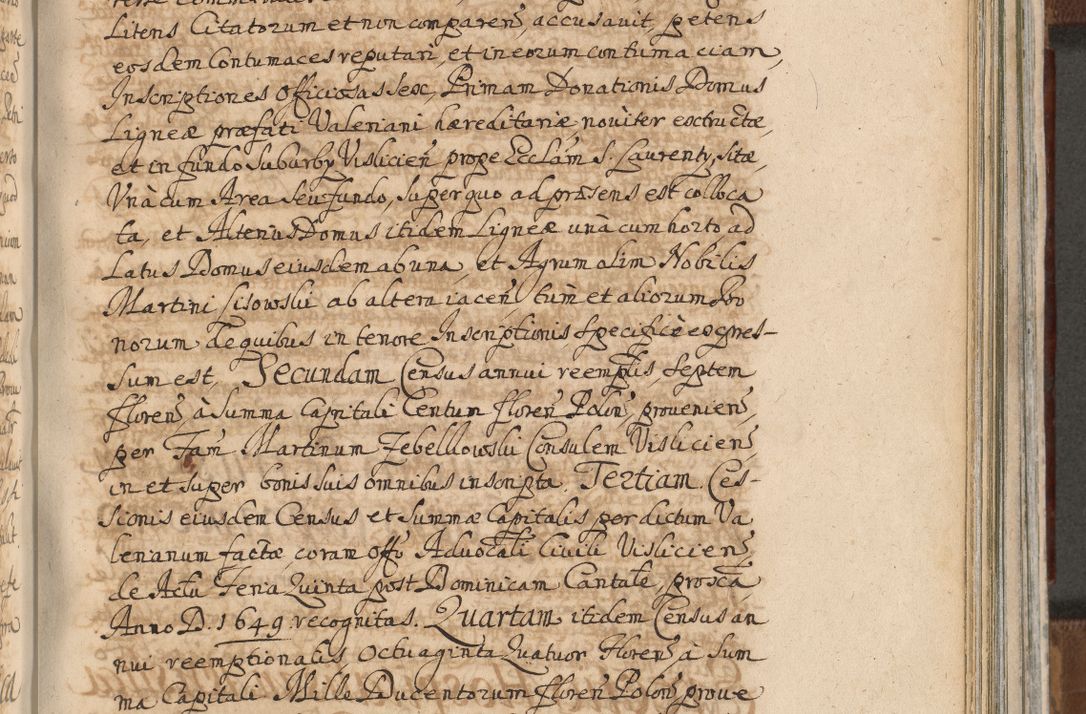 Litens Citatorum et non comparen̄ accusavit, petens
eosdem Contumaces reputari, et in eorum contumaciam,
Inscriptiones Officiosas seoc, Primam Donationis Domus
Ligneæ præfati Valeriani hæreditariæ noviter exctructæ,
et in fundo Suburby Vislicien̄ prope Eccl̄am S. Laurenty, sitæ,
Unà cum Area seu fundo, super quo ad præsens est colloca
ta, et Alterius Domus itidem Ligneæ unà cum horto ad
Latus Domus eiusdem ab una, et Agrum olim Nobilis
Martini Lisowski ab altera iacen̄, tum et aliorum Bo
norum de quibus in tenore Inscriptionis specificè expres-
sum est, Secundam Census annui reemp̄lis, septem
floren̄, à Summa Capitali Centum floren̄ Polon̄, provenien̄,
per Fam̄ Martinum Zebellowski Consulem Vislicien̄
in et super bonis suis omnibus inscripta. Tertiam Ces-
sionis eiusdem Census et Summæ Capitalis per dictum Va
lerianum factæ, coram offo Advocāli Civili Vislicien̄,
de Actu Feria Quinta post Dominicam Cantate, proxcā
Anno D. 1649. recognitas. Quartam itidem Census an
nui reemptionalis Octuaginta Quatuor Floren̄ à Sum
ma Capitali Mille Ducentorum floren̄ Polon̄ prove